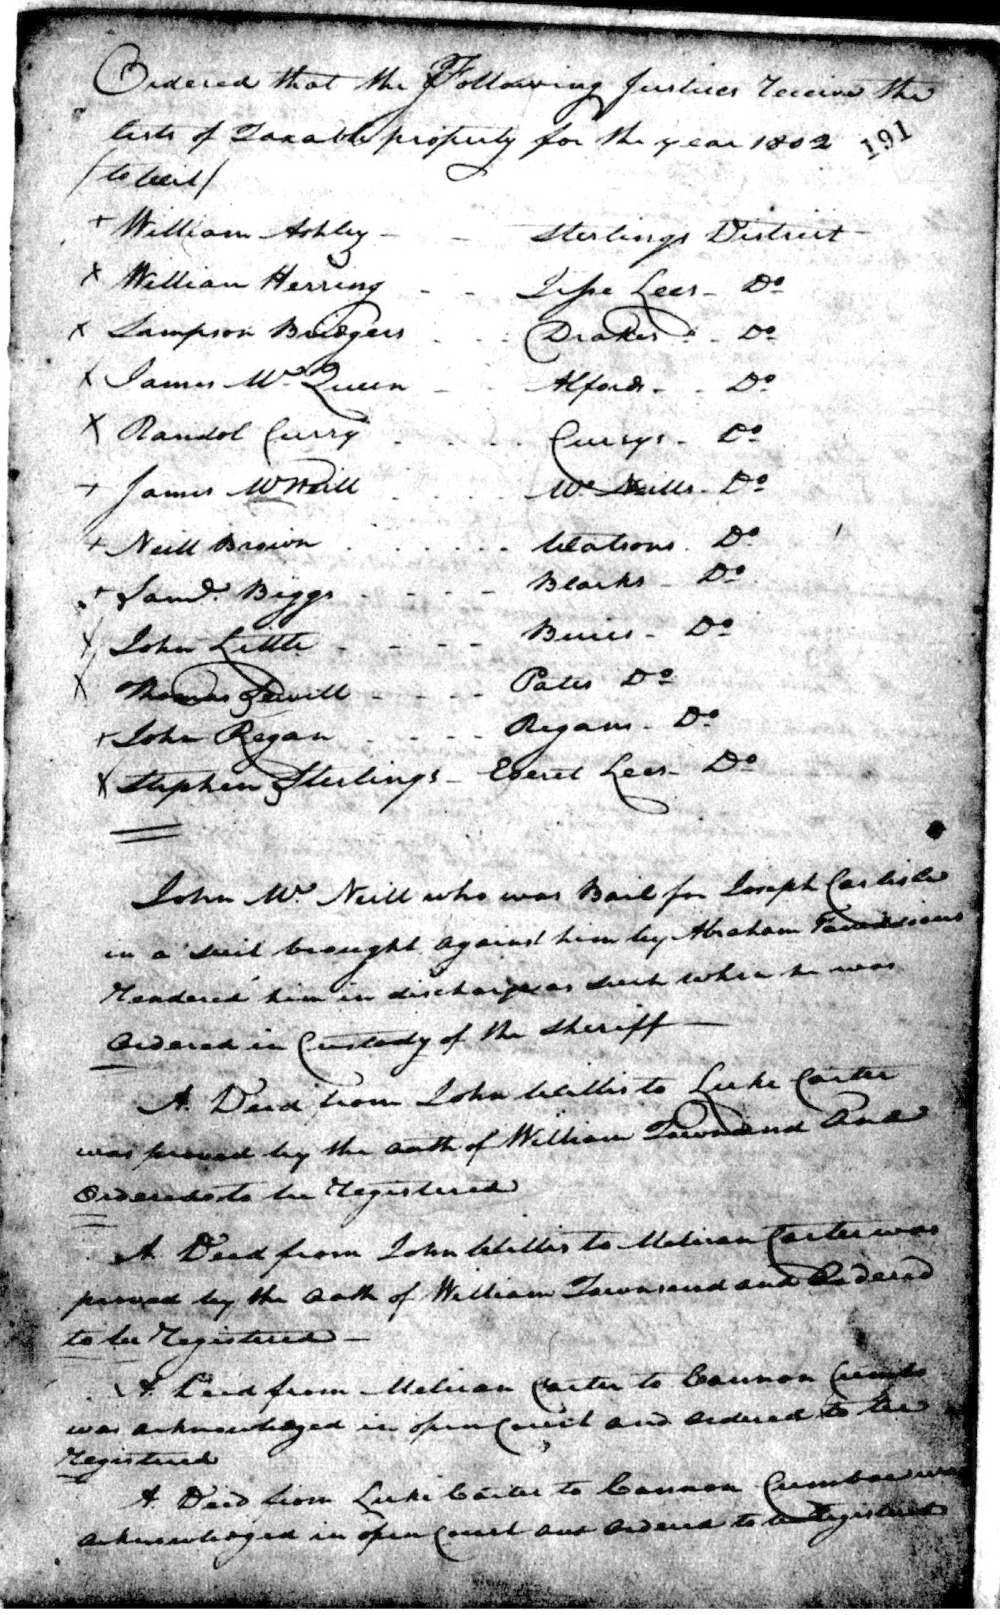 Ordered that the Following Justices receive the
lists of Taxable property for the year 1802
191
/to wit/
+ William Ashley - - Sterlings District -
x William Herring - - Jesse Lees - Do
x Sampson Bridgers - - Drakes - Do
x James Mc Queen - - Alfords - Do
x Randol Curry - - - - Currys - Do
+ James McNeill - - - Mc Neills - Do
+ Neill Brown - - - - - - Watsons - Do
+ Saml. Biggs - - - - Blacks - Do
x John Little - - - - Do
x Thomas - - - - Pates Do
+ John Regan - - - - Regans - Do
x Stephen Sterlings - Everet Lees - Do
John Mc Neill who was Bail for Joseph Carlisle
in a suit brought against him by Abraham
rendered him in discharge as such when he was
ordered in Custody of the Sheriff -
A Deed from John Willis to Luke Carter
was proved by the oath of William Townsend and
Ordered to be Registered
A Deed from John Willis to Carter was
proved by the oath of William Townsend and Ordered
to be Registered -
A Deed from Carter to Cannon Cumbo
was acknowledged in open Court and ordered to be
Registered
A Deed from Luke Carter to Cannon Cumboe was
acknowledged in open Court and ordered to be Registered